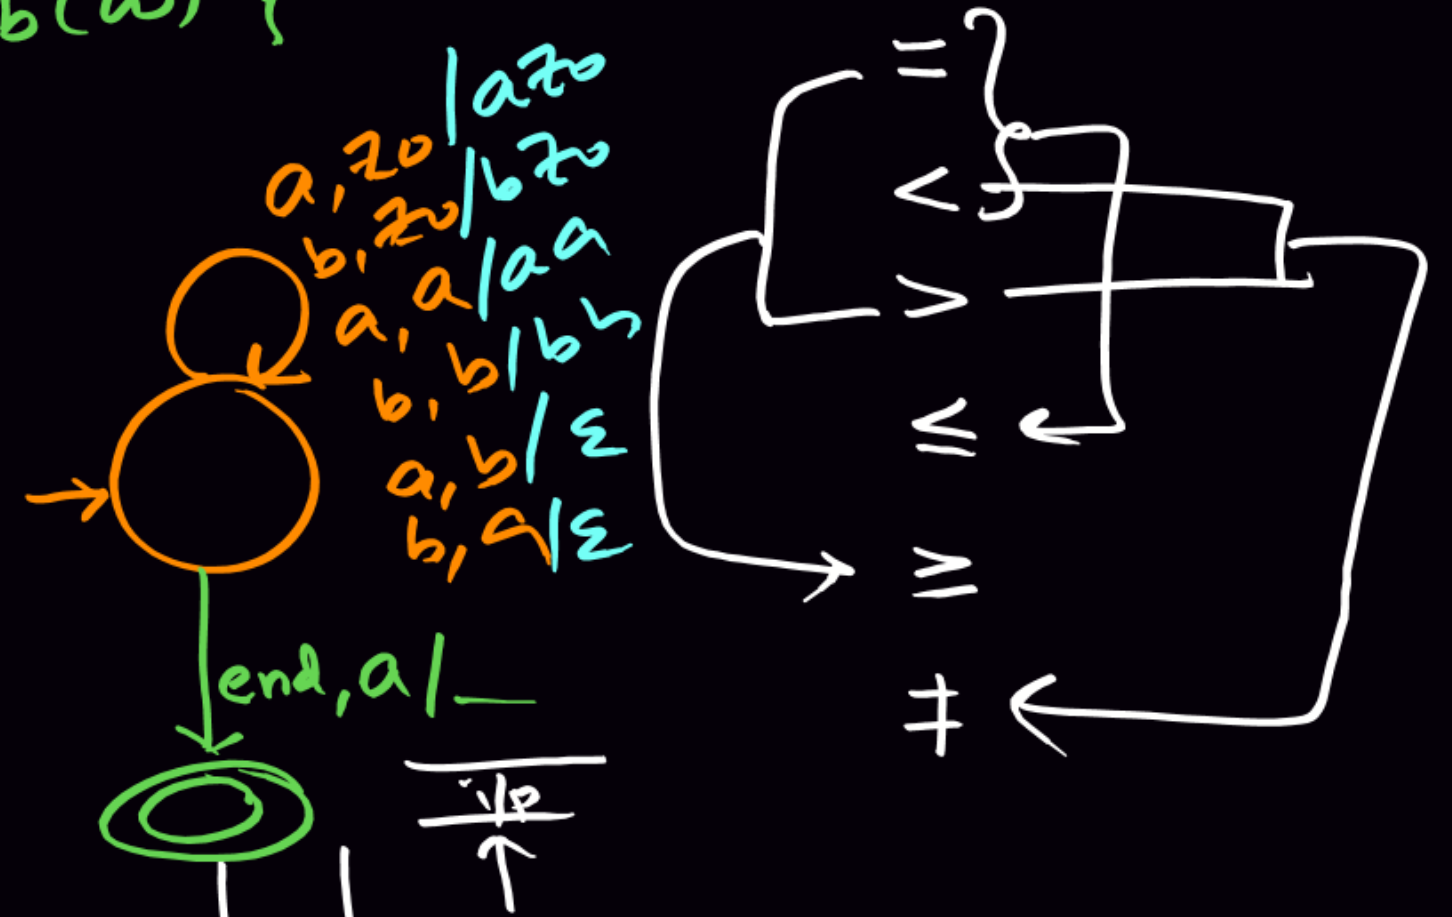 b(w) {
a, z0 | a z0
b, z0 | b z0
a, a | a a
b, b | b b
a, b | ε
b, a | ε
end, a | __
i/p
=
<
>
≤
≥
≠